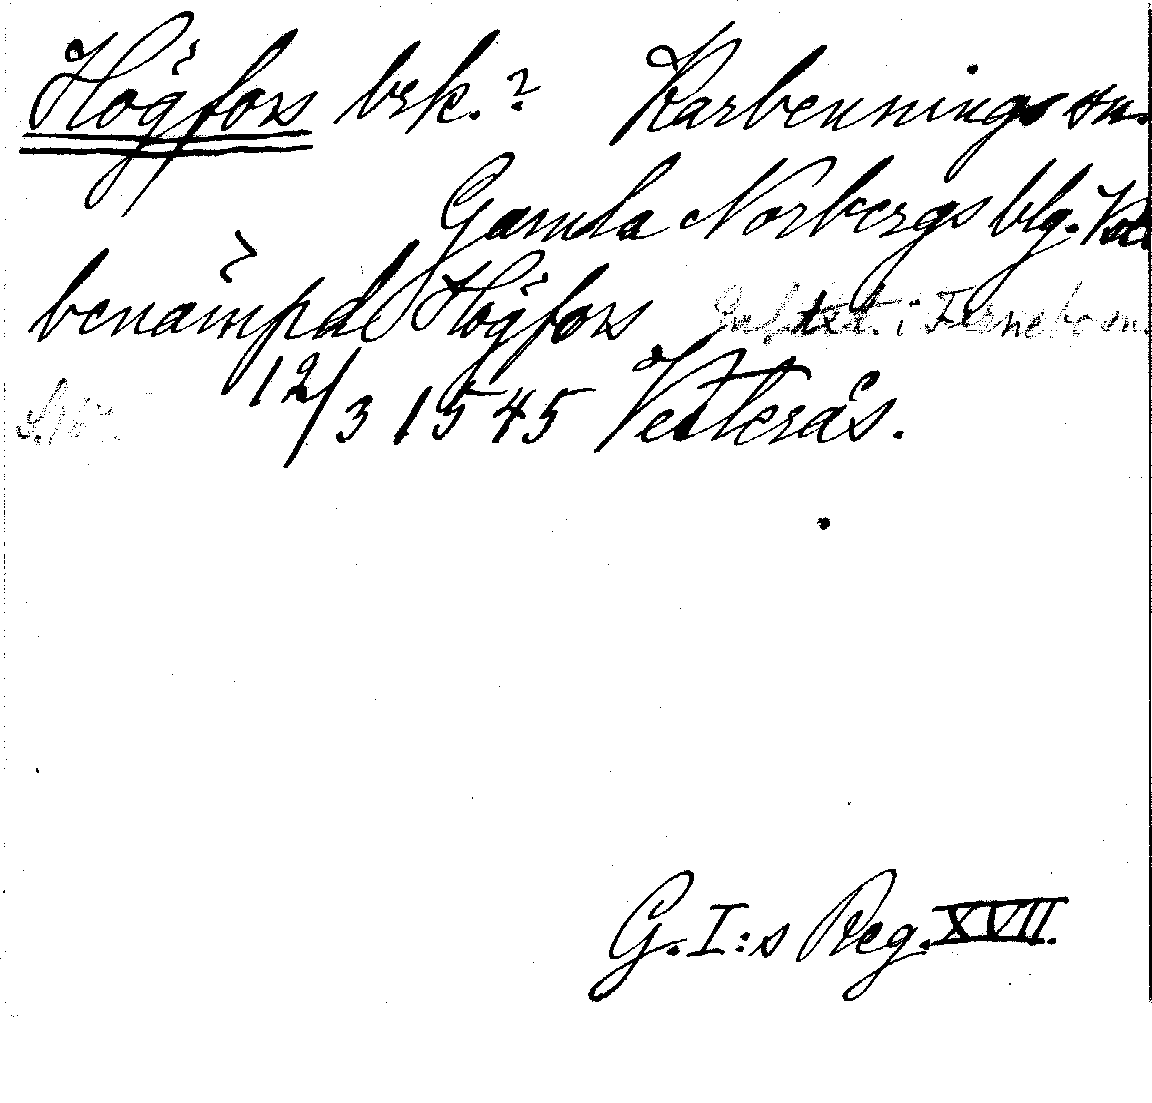 Högfors brk.? Karbennings sn.
Gamla Norbergs blg. Vstm
benämpd Högfors i Fernebo sn.
12/3 1545 Vesterås.
G.I:s Reg. XVII.